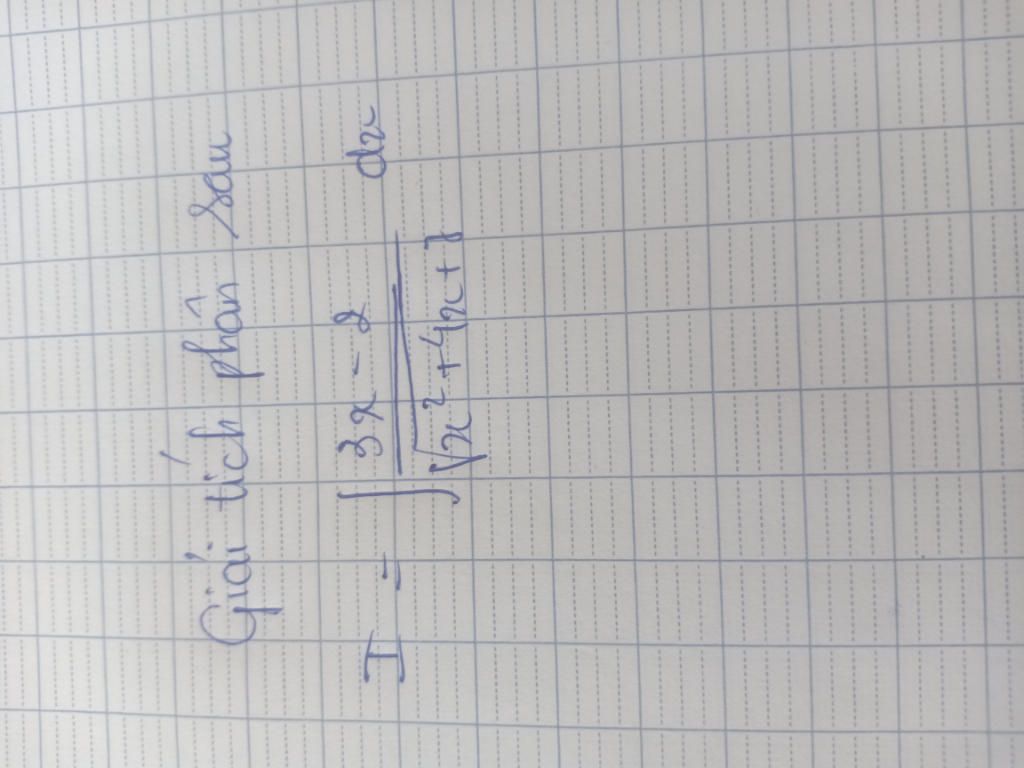 Giải tích phân sau
I = ∫ 3x - 2 / √x² + 4x + 8 dx